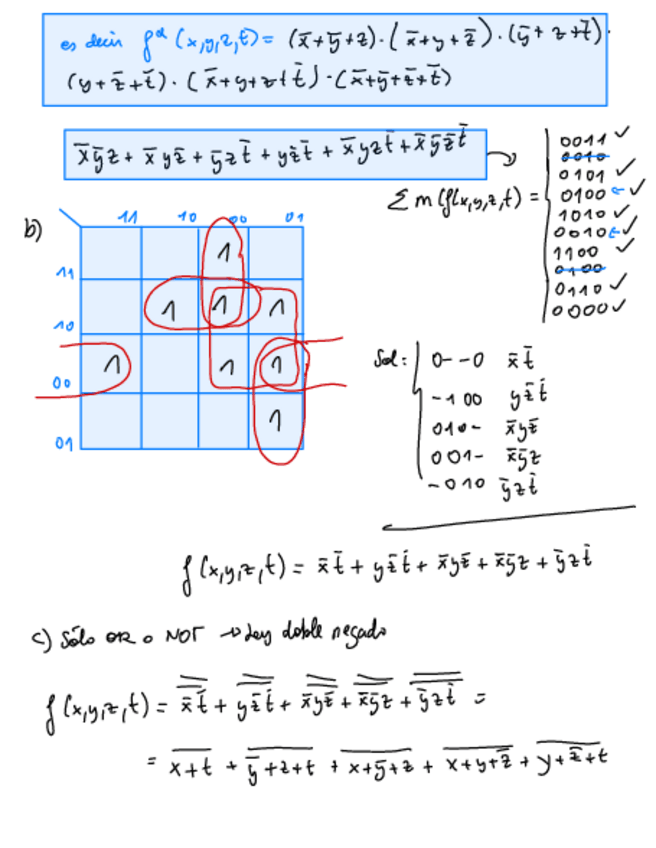 es decir f^d (x,y,z,t) = (x̄+ȳ+z)·(x̄+y+z̄)·(ȳ+z+t̄)·
(y+z̄+t̄)·(x̄+y+z+t̄)·(x̄+ȳ+z̄+t̄)
x̄ȳz + x̄yz̄ + ȳzt̄ + yz̄t̄ + x̄yzt̄ + x̄ȳz̄t̄
Σ m (f(x,y,z,t) =
0011 ✓
0010
0101 ✓
0100 ✓
1010 ✓
0010 ✓
1100 ✓
0100
0110 ✓
0000 ✓
b)
11 10 00 01
11 1
10 1 1 1
00 1 1 1
01 1
Sol:
0--0 x̄t̄
-100 yz̄t̄
010- x̄yz̄
001- x̄ȳz
-010 ȳzt̄
f(x,y,z,t) = x̄t̄ + yz̄t̄ + x̄yz̄ + x̄ȳz + ȳzt̄
c) Sólo OR o NOT → Ley doble negado
f(x,y,z,t) = x̄t̄ + yz̄t̄ + x̄yz̄ + x̄ȳz + ȳzt̄ =
= x+t + ȳ+z+t + x+ȳ+z + x+y+z̄ + y+z̄+t